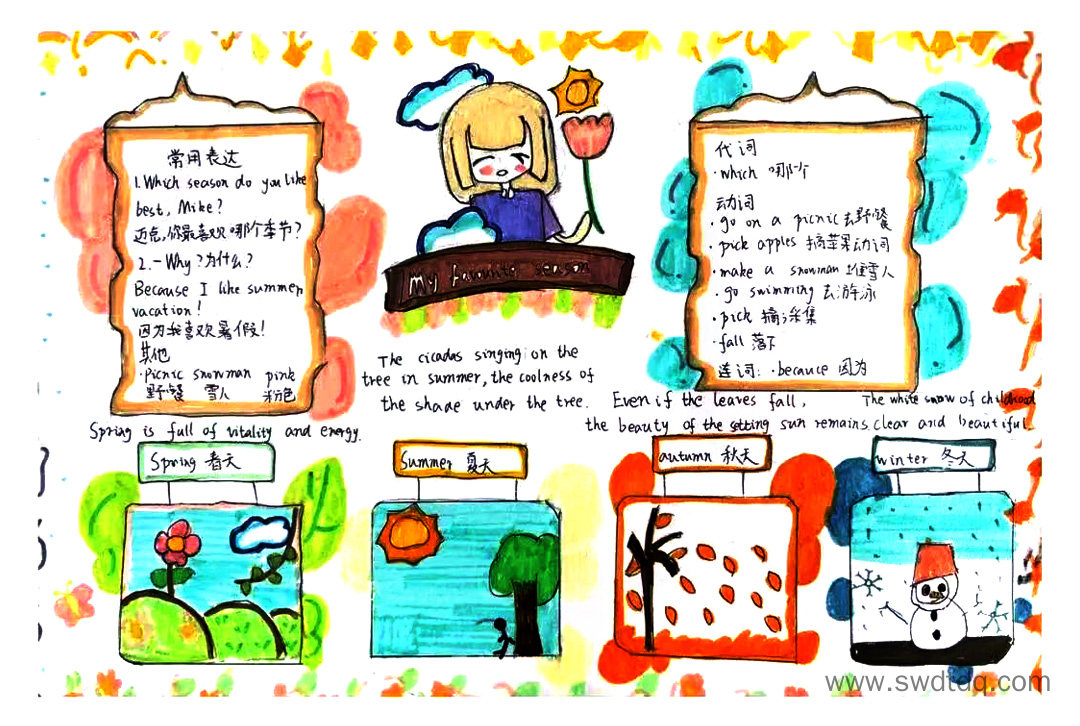 常用表达
1. Which season do you like
best, Mike?
迈克,你最喜欢哪个季节?
2. - Why? 为什么?
Because I like summer
vacation!
因为我喜欢暑假!
其他
·Picnic snowman pink
野餐 雪人 粉色
My favourite season
代词
·which 哪个
动词
·go on a picnic 去野餐
·pick apples 摘苹果动词
·make a snowman 堆雪人
·go swimming 去游泳
·pick 摘;采集
·fall 落下
连词: ·becauce 因为
The cicadas singing on the
tree in summer, the coolness of
the shade under the tree.
Spring is full of vitality and energy.
Even if the leaves fall,
the beauty of the setting sun remains.
The white snow of childhood
clear and beautiful.
Spring 春天
Summer 夏天
autumn 秋天
winter 冬天
www.swdtdq.com